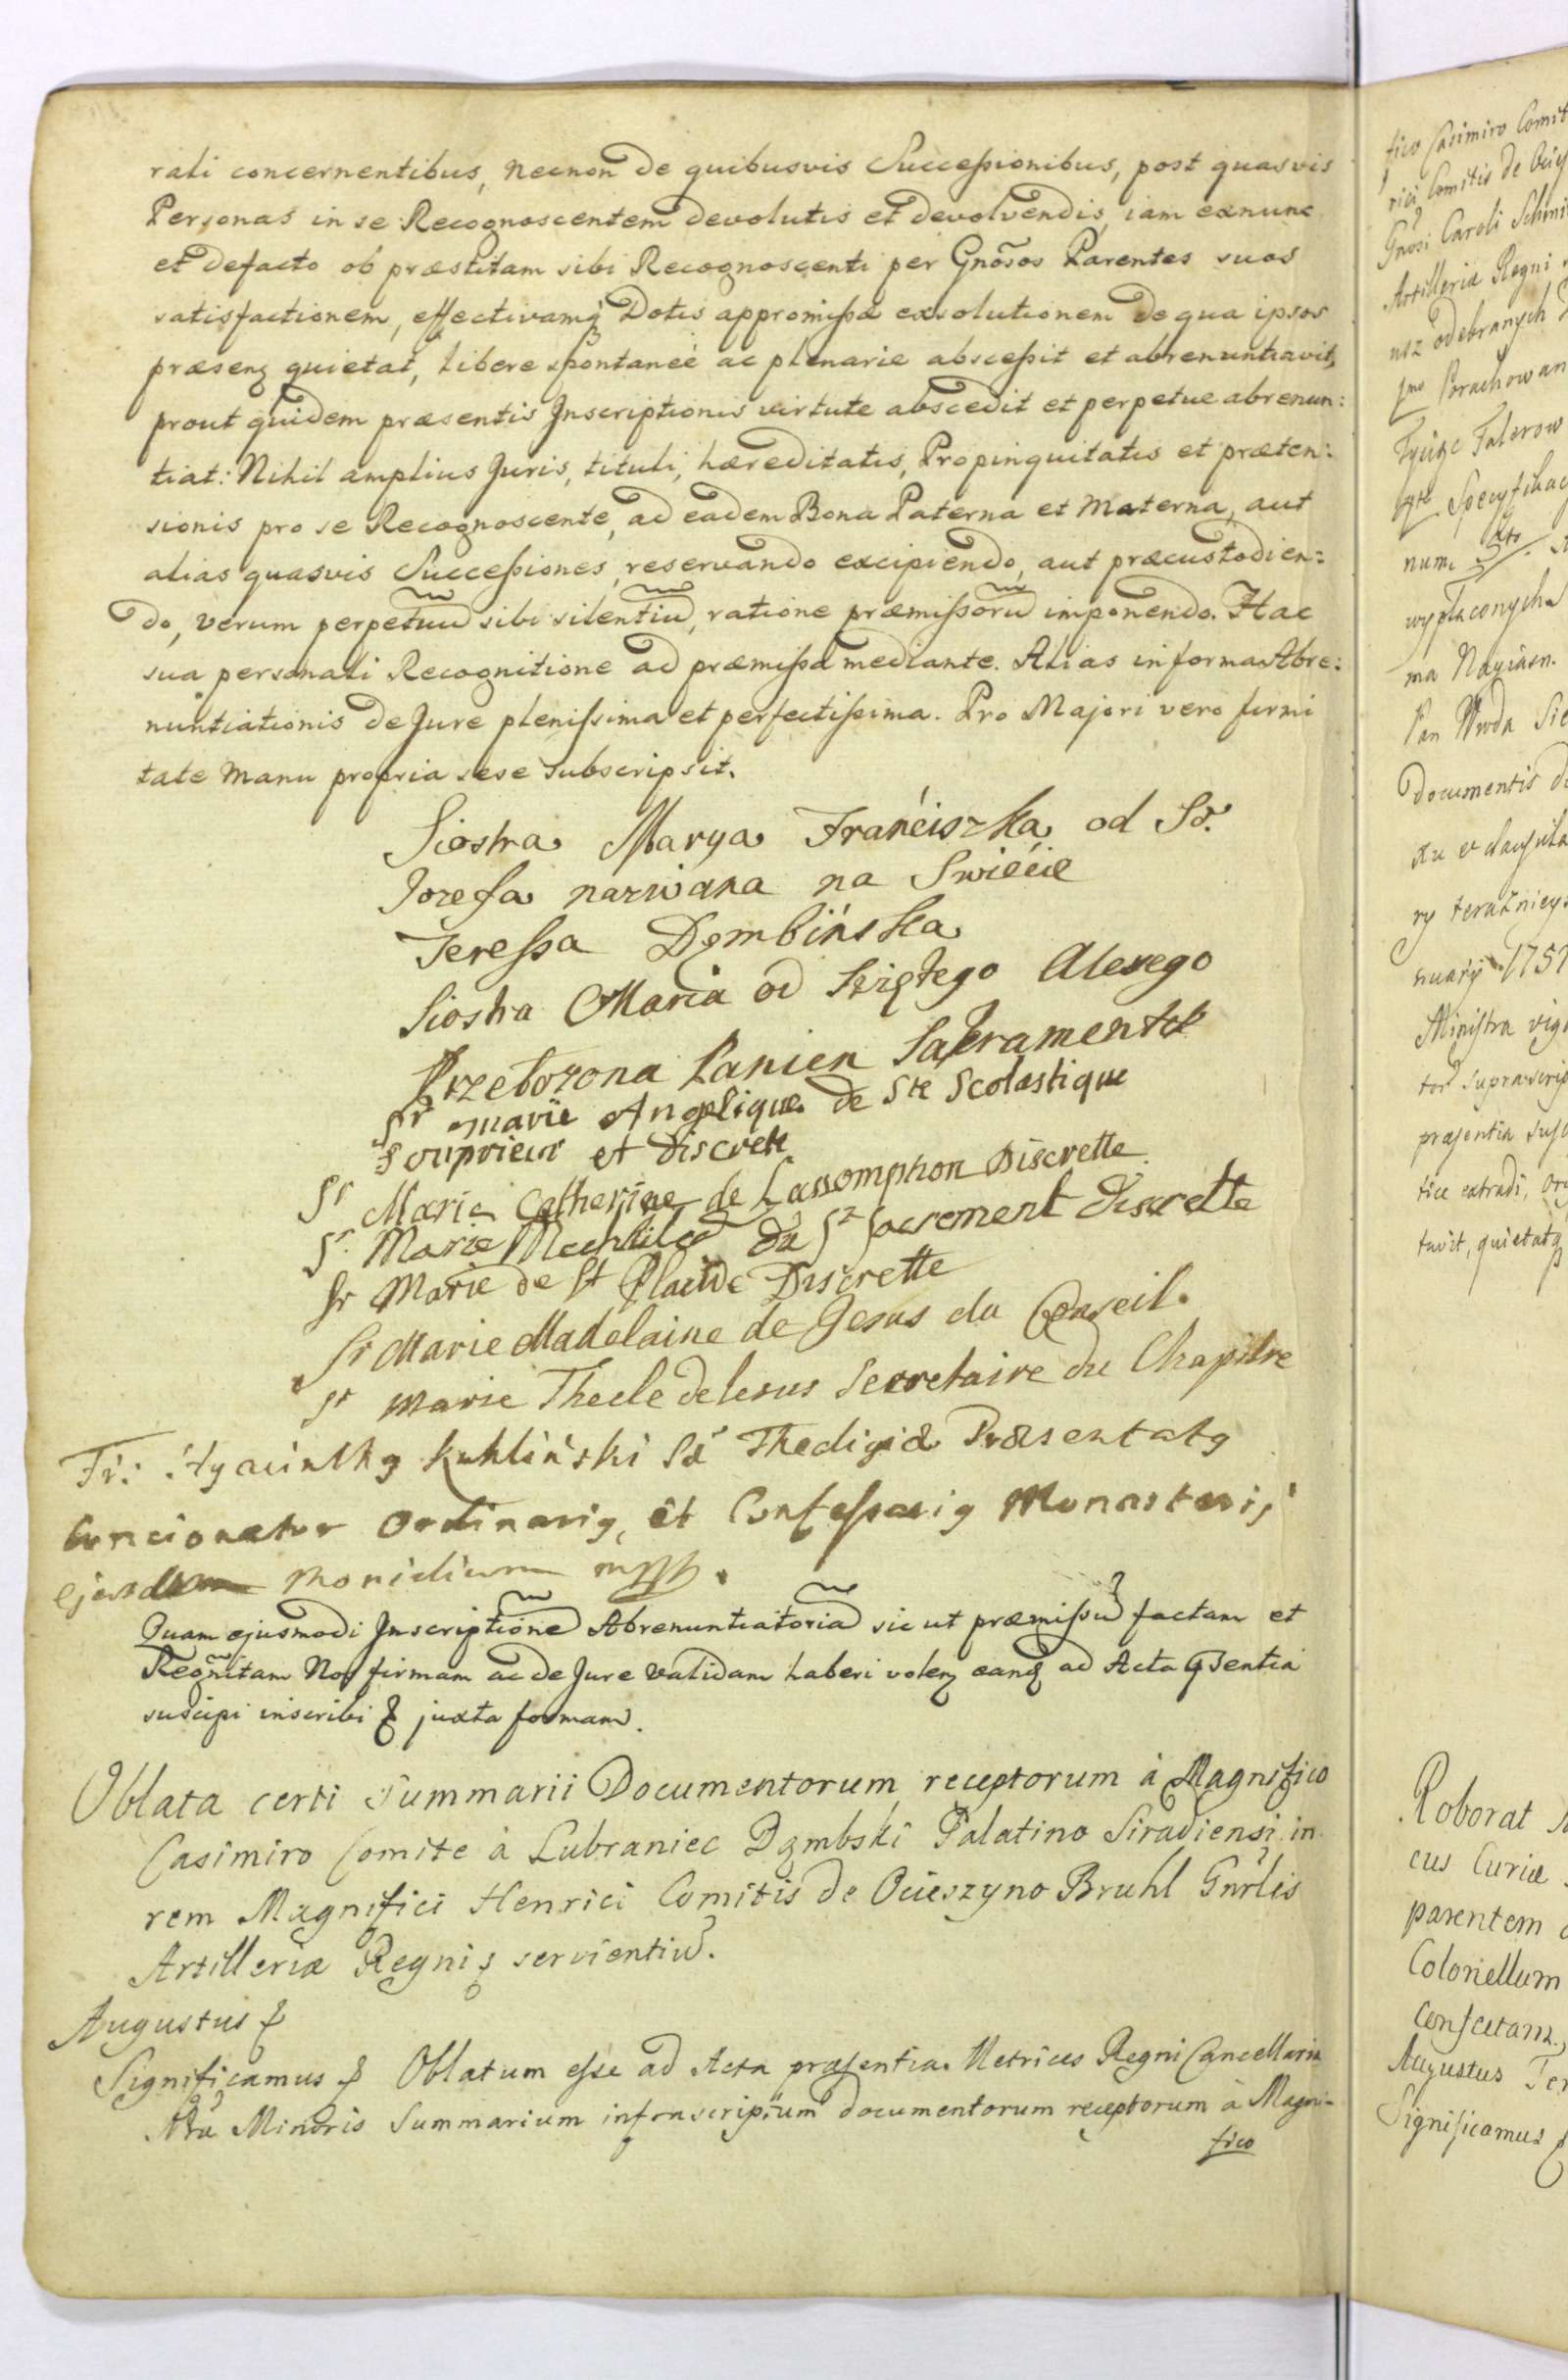 rali concernentibus, necnon de quibusvis Successionibus, post quasvis
Personas in se Recognoscentem devolutis et devolvendis, iam exnunc
et defacto ob præstitam sibi Recognoscenti per Gnõsos Parentes suos
satisfactionem, effectivamq Dotis appromissæ exsolutionem de qua ipsos
præsenz quietat, libere spontanee ac plenarie abscessit et abrenuntiavit,
prout quidem præsentis Inscriptionis virtute abscedit et perpetue abrenun:
tiat: Nihil amplius Juris, tituli, hæreditatis, Propinquitatis et præten:
sionis pro se Recognoscente, ad eadem Bona Paterna et Materna, aut
alias quasvis Successiones, reservando excipiendo, aut præcustodien:
do, verum perpetuu sibi silentiu, ratione præmissoru imponendo. Hac
sua personali Recognitione ad præmissa mediante. Alias in forma Abre:
nuntiationis de Jure plenissima et perfectissima. Pro Majori vero firmi
tate manu propria sese subscripsit.
Siostra Marya Franciszka od Sº.
Jozefa nazwana na Swiecie
Teressa Dęmbińska
Siostra Maria od Swiętego Alexego
Przełożona Panien Sakramentek
Sr marie Angelique de Ste Scolastique
Souprieur et discrete
Sr Marie Catherine de Lassomption Discrette
Sr. Marie Mechtilde du St Sacrement discrette
Sr Marie de St Placide Discrette
Sr Marie Madelaine de Jesus du Conseil.
Sr marie Thecle de Iesus Secretaire du Chapitre
Fr: Hyacinthg Kuhliński Sæ Theoligiæ Præsentatg
Concionator Ordinarig, et Confessarig Monasterij
ejusdem Monialium mpp.
Quam ejusmodi Inscriptione Abrenuntiatoria sic ut præmissu factam et
Regnitam Nos firmam ac de Jure validam haberi volenz eanq ad Acta pseentia
suscipi inscribi & juxta formam.
Oblata certi Summarii Documentorum receptorum à Magnifico
Casimiro Comite à Lubraniec Dąmbski Palatino Siradiensi in
rem Magnifici Henrici Comitis de Ocieszyno Bruhl Gnrlis
Artilleriæ Regni & servientiu.
Augustus &
Significamus & Oblatum esse ad Acta præsentia Metrices Regni Cancellariæ
Minoris Summarium infrascriptum documentorum receptorum à Magni-
fico
fico Casimiro Comit
rici Comitis de Ocies
Gnosi Caroli Schmi
Artilleriæ Regni
usz odebranych
Brachowan
Tysięc Talerow
Specyfikac
num.
wypłaconych
ma Nayiasn.
Pan Wwda Sie
Documentis d
ry teraznieys
nuarij 1757
Ministra vig
præsentia susc
tice extradi, Ori
tavit, quietatq
Roborat
cus Curiæ
parentem
Colonellum
Consectam.
Augustus Ter
Significamus &